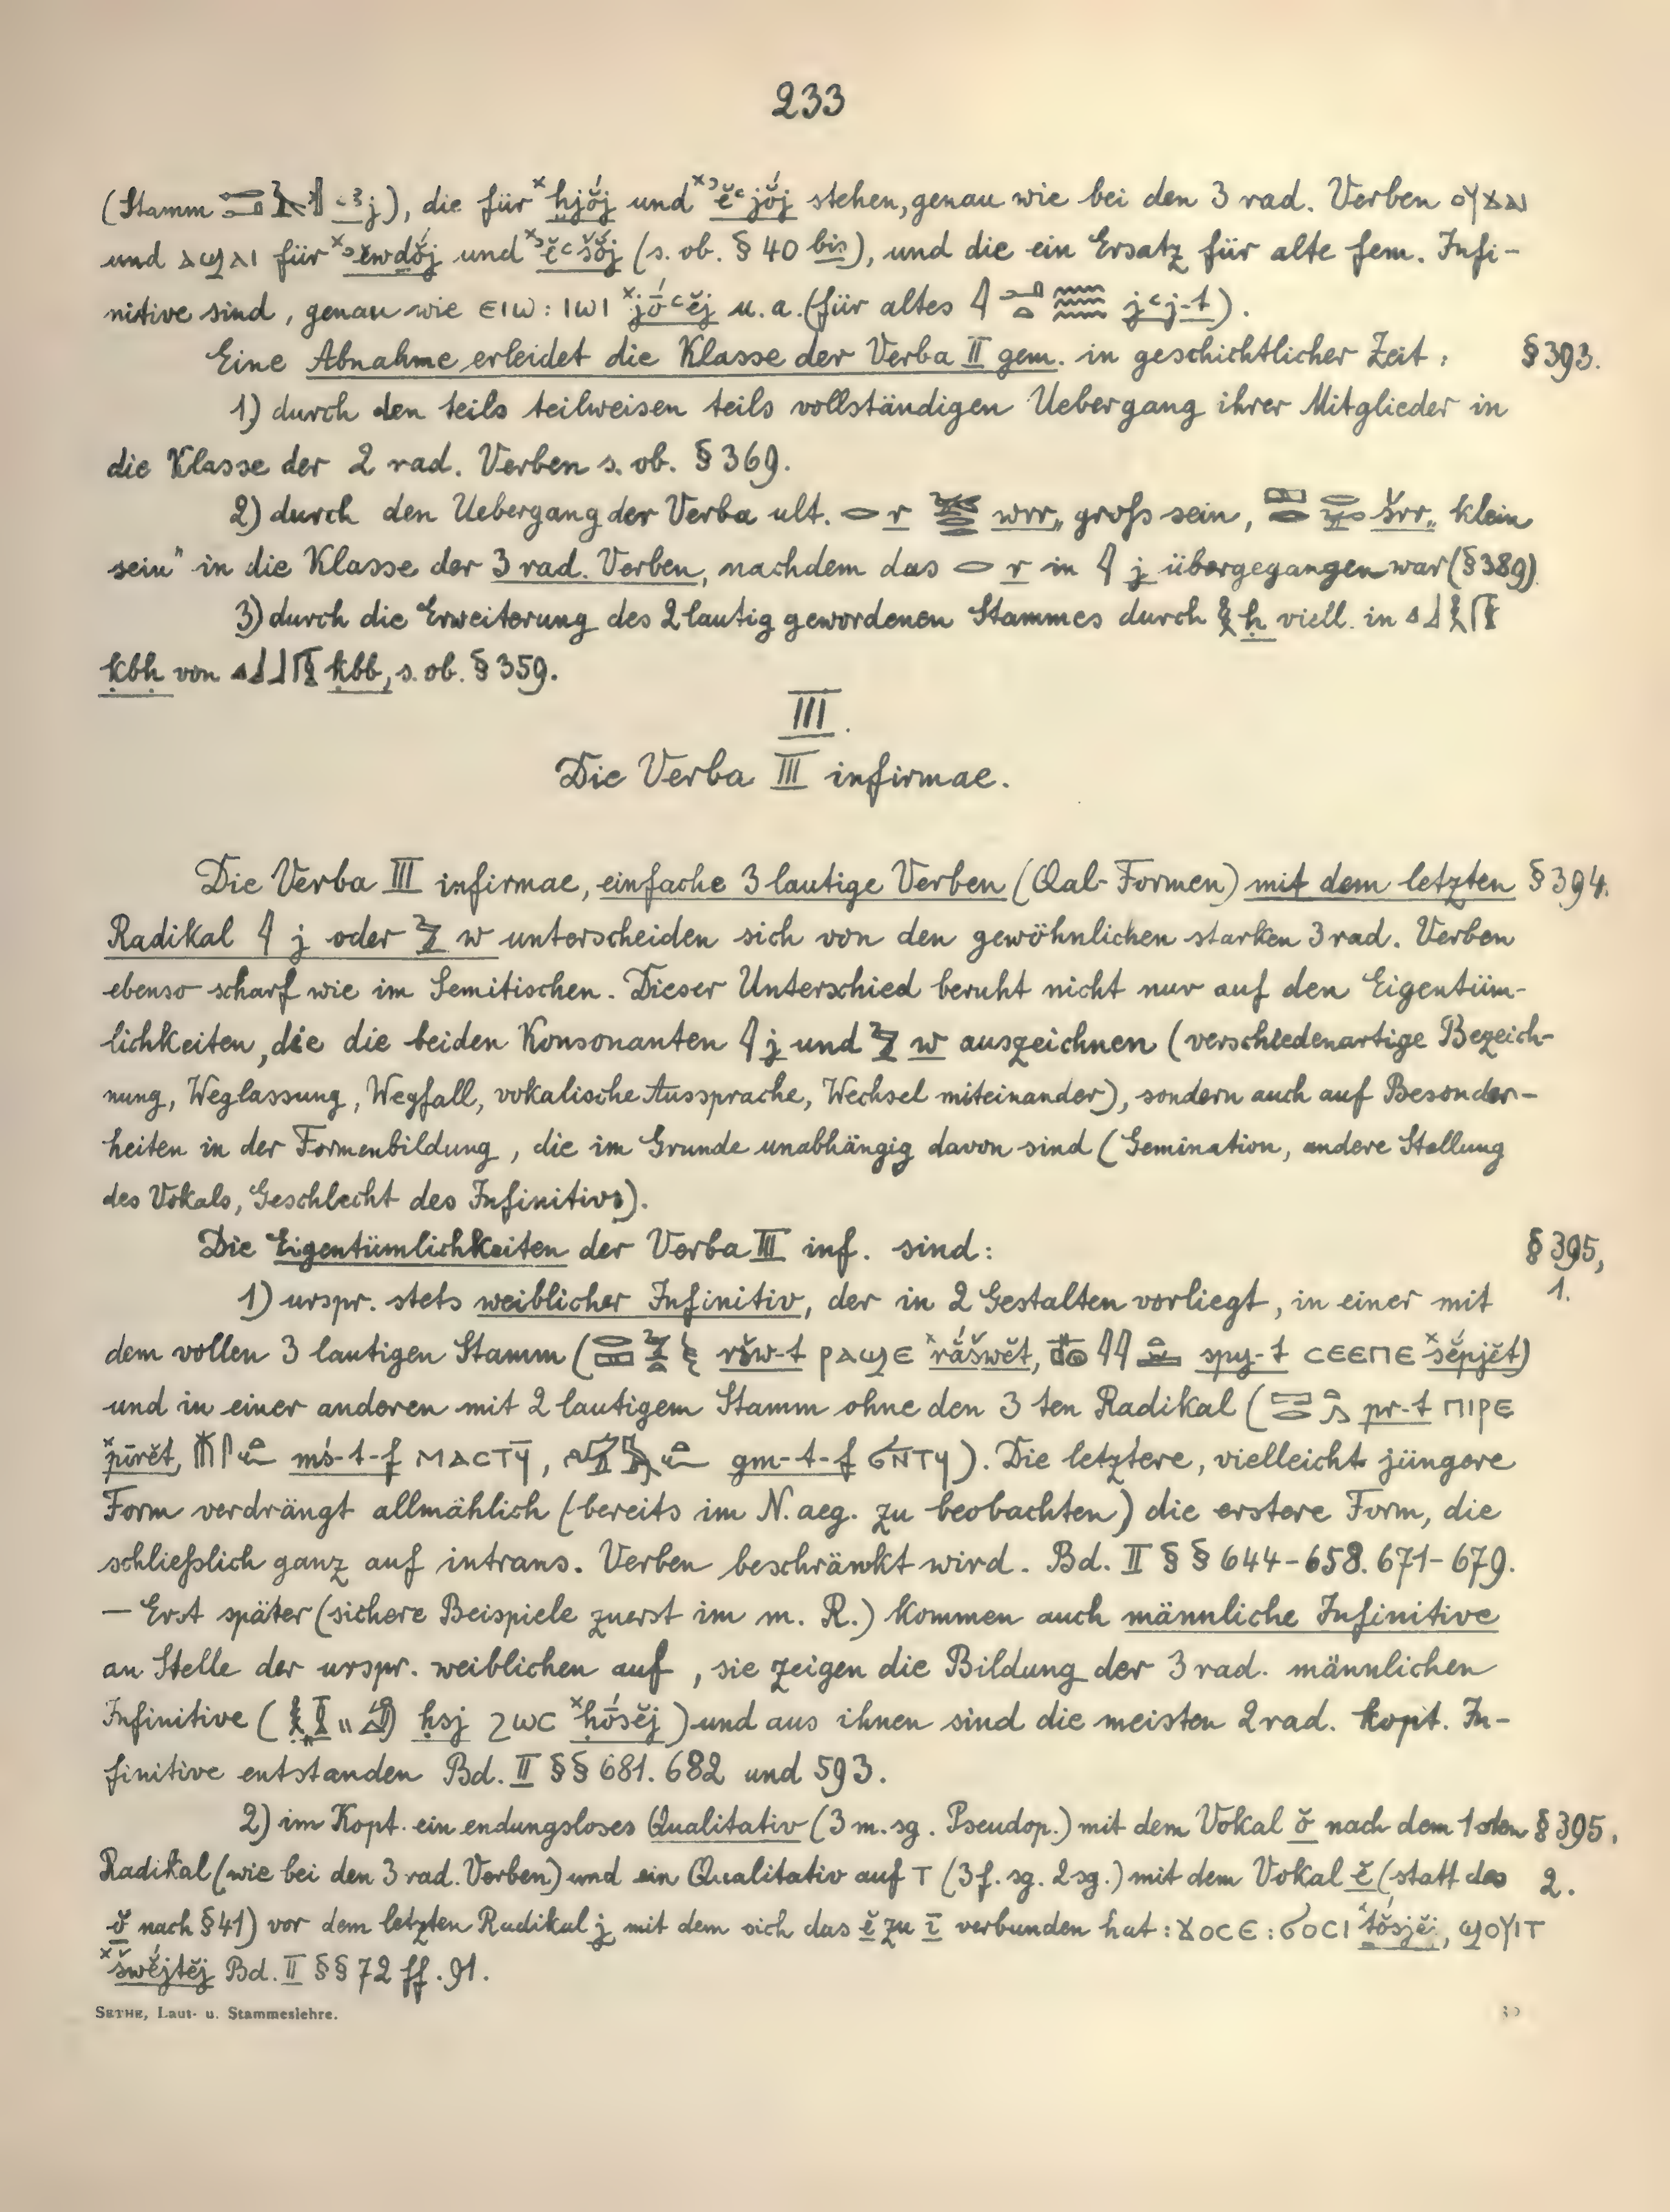 233
(Stamm ꜥꜣj), die für ˣhjŏ́j und ˣʾĕꜥjŏ́j stehen, genau wie bei den 3 rad. Verben ⲟⲩϫⲁⲓ
und ⲁϣⲁⲓ für ˣʾĕwdŏ́j und ˣʾĕꜥšŏ́j (s. ob. § 40 bis), und die ein Ersatz für alte fem. Infi-
nitive sind, genau wie ⲉⲓⲱ : ⲓⲱⲓ ˣjṓꜥĕj u. a. (für altes 𓇋𓂝𓏏𓈗 jꜥj-t).
Eine Abnahme erleidet die Klasse der Verba II gem. in geschichtlicher Zeit: § 393.
1) durch den teils teilweisen teils vollständigen Uebergang ihrer Mitglieder in
die Klasse der 2 rad. Verben s. ob. § 369.
2) durch den Uebergang der Verba ult. 𓂋 r wrr „gross sein, šrr „klein
sein" in die Klasse der 3 rad. Verben, nachdem das 𓂋 r in 𓇋 j übergegangen war (§ 389)
3) durch die Erweiterung des 2 lautig gewordenen Stammes durch 𓎛 ḥ viell. in 𓈎𓃀𓎛
ḳbḥ von 𓈎𓃀𓃀 ḳbb, s. ob. § 359.
III.
Die Verba III infirmae.
Die Verba III infirmae, einfache 3 lautige Verben (Qal-Formen) mit dem letzten § 394.
Radikal 𓇋 j oder 𓅱 w unterscheiden sich von den gewöhnlichen starken 3 rad. Verben
ebenso scharf wie im Semitischen. Dieser Unterschied beruht nicht nur auf den Eigentüm-
lichkeiten, die die beiden Konsonanten 𓇋 j und 𓅱 w auszeichnen (verschiedenartige Bezeich-
nung, Weglassung, Wegfall, vokalische Aussprache, Wechsel miteinander), sondern auch auf Besonder-
heiten in der Formenbildung, die im Grunde unabhängig davon sind (Gemination, andere Stellung
des Vokals, Geschlecht des Infinitivs).
Die Eigentümlichkeiten der Verba III inf. sind: § 395,
1) urspr. stets weiblicher Infinitiv, der in 2 Gestalten vorliegt, in einer mit 1.
dem vollen 3 lautigen Stamm (ršw-t ⲣⲁϣⲉ ˣrắšwĕt, spy-t ⲥⲉⲉⲡⲉ ˣsĕ́pjĕt)
und in einer anderen mit 2 lautigem Stamm ohne den 3 ten Radikal (pr-t ⲡⲓⲣⲉ
ˣpīrĕt, mś-t-f ⲙⲁⲥⲧϥ̄, gm-t-f ϭⲛ̄ⲧϥ). Die letztere, vielleicht jüngere
Form verdrängt allmählich (bereits im N. aeg. zu beobachten) die erstere Form, die
schliesslich ganz auf intrans. Verben beschränkt wird. Bd. II § § 644-658. 671-679.
— Erst später (sichere Beispiele zuerst im m. R.) kommen auch männliche Infinitive
an Stelle der urspr. weiblichen auf, sie zeigen die Bildung der 3 rad. männlichen
Infinitive (ḥsj ϩⲱⲥ ˣḥṓsĕj) und aus ihnen sind die meisten 2 rad. kopt. In-
finitive entstanden Bd. II § § 681. 682 und 593.
2) im Kopt. ein endungsloses Qualitativ (3 m. sg. Pseudop.) mit dem Vokal ŏ nach dem 1sten § 395.
Radikal (wie bei den 3 rad. Verben) und ein Qualitativ auf ⲧ (3 f. sg. 2 sg.) mit dem Vokal ĕ (statt des 2.
ŏ nach § 41) vor dem letzten Radikal j mit dem sich das ĕ zu ī verbunden hat: ϫⲟⲥⲉ : ϭⲟⲥⲓ ˣtŏ́sjĕj, ϣⲟⲩⲓⲧ
ˣšwĕ́jtĕj Bd. II § § 72 ff. 91.
SETHE, Laut- u. Stammeslehre. 30